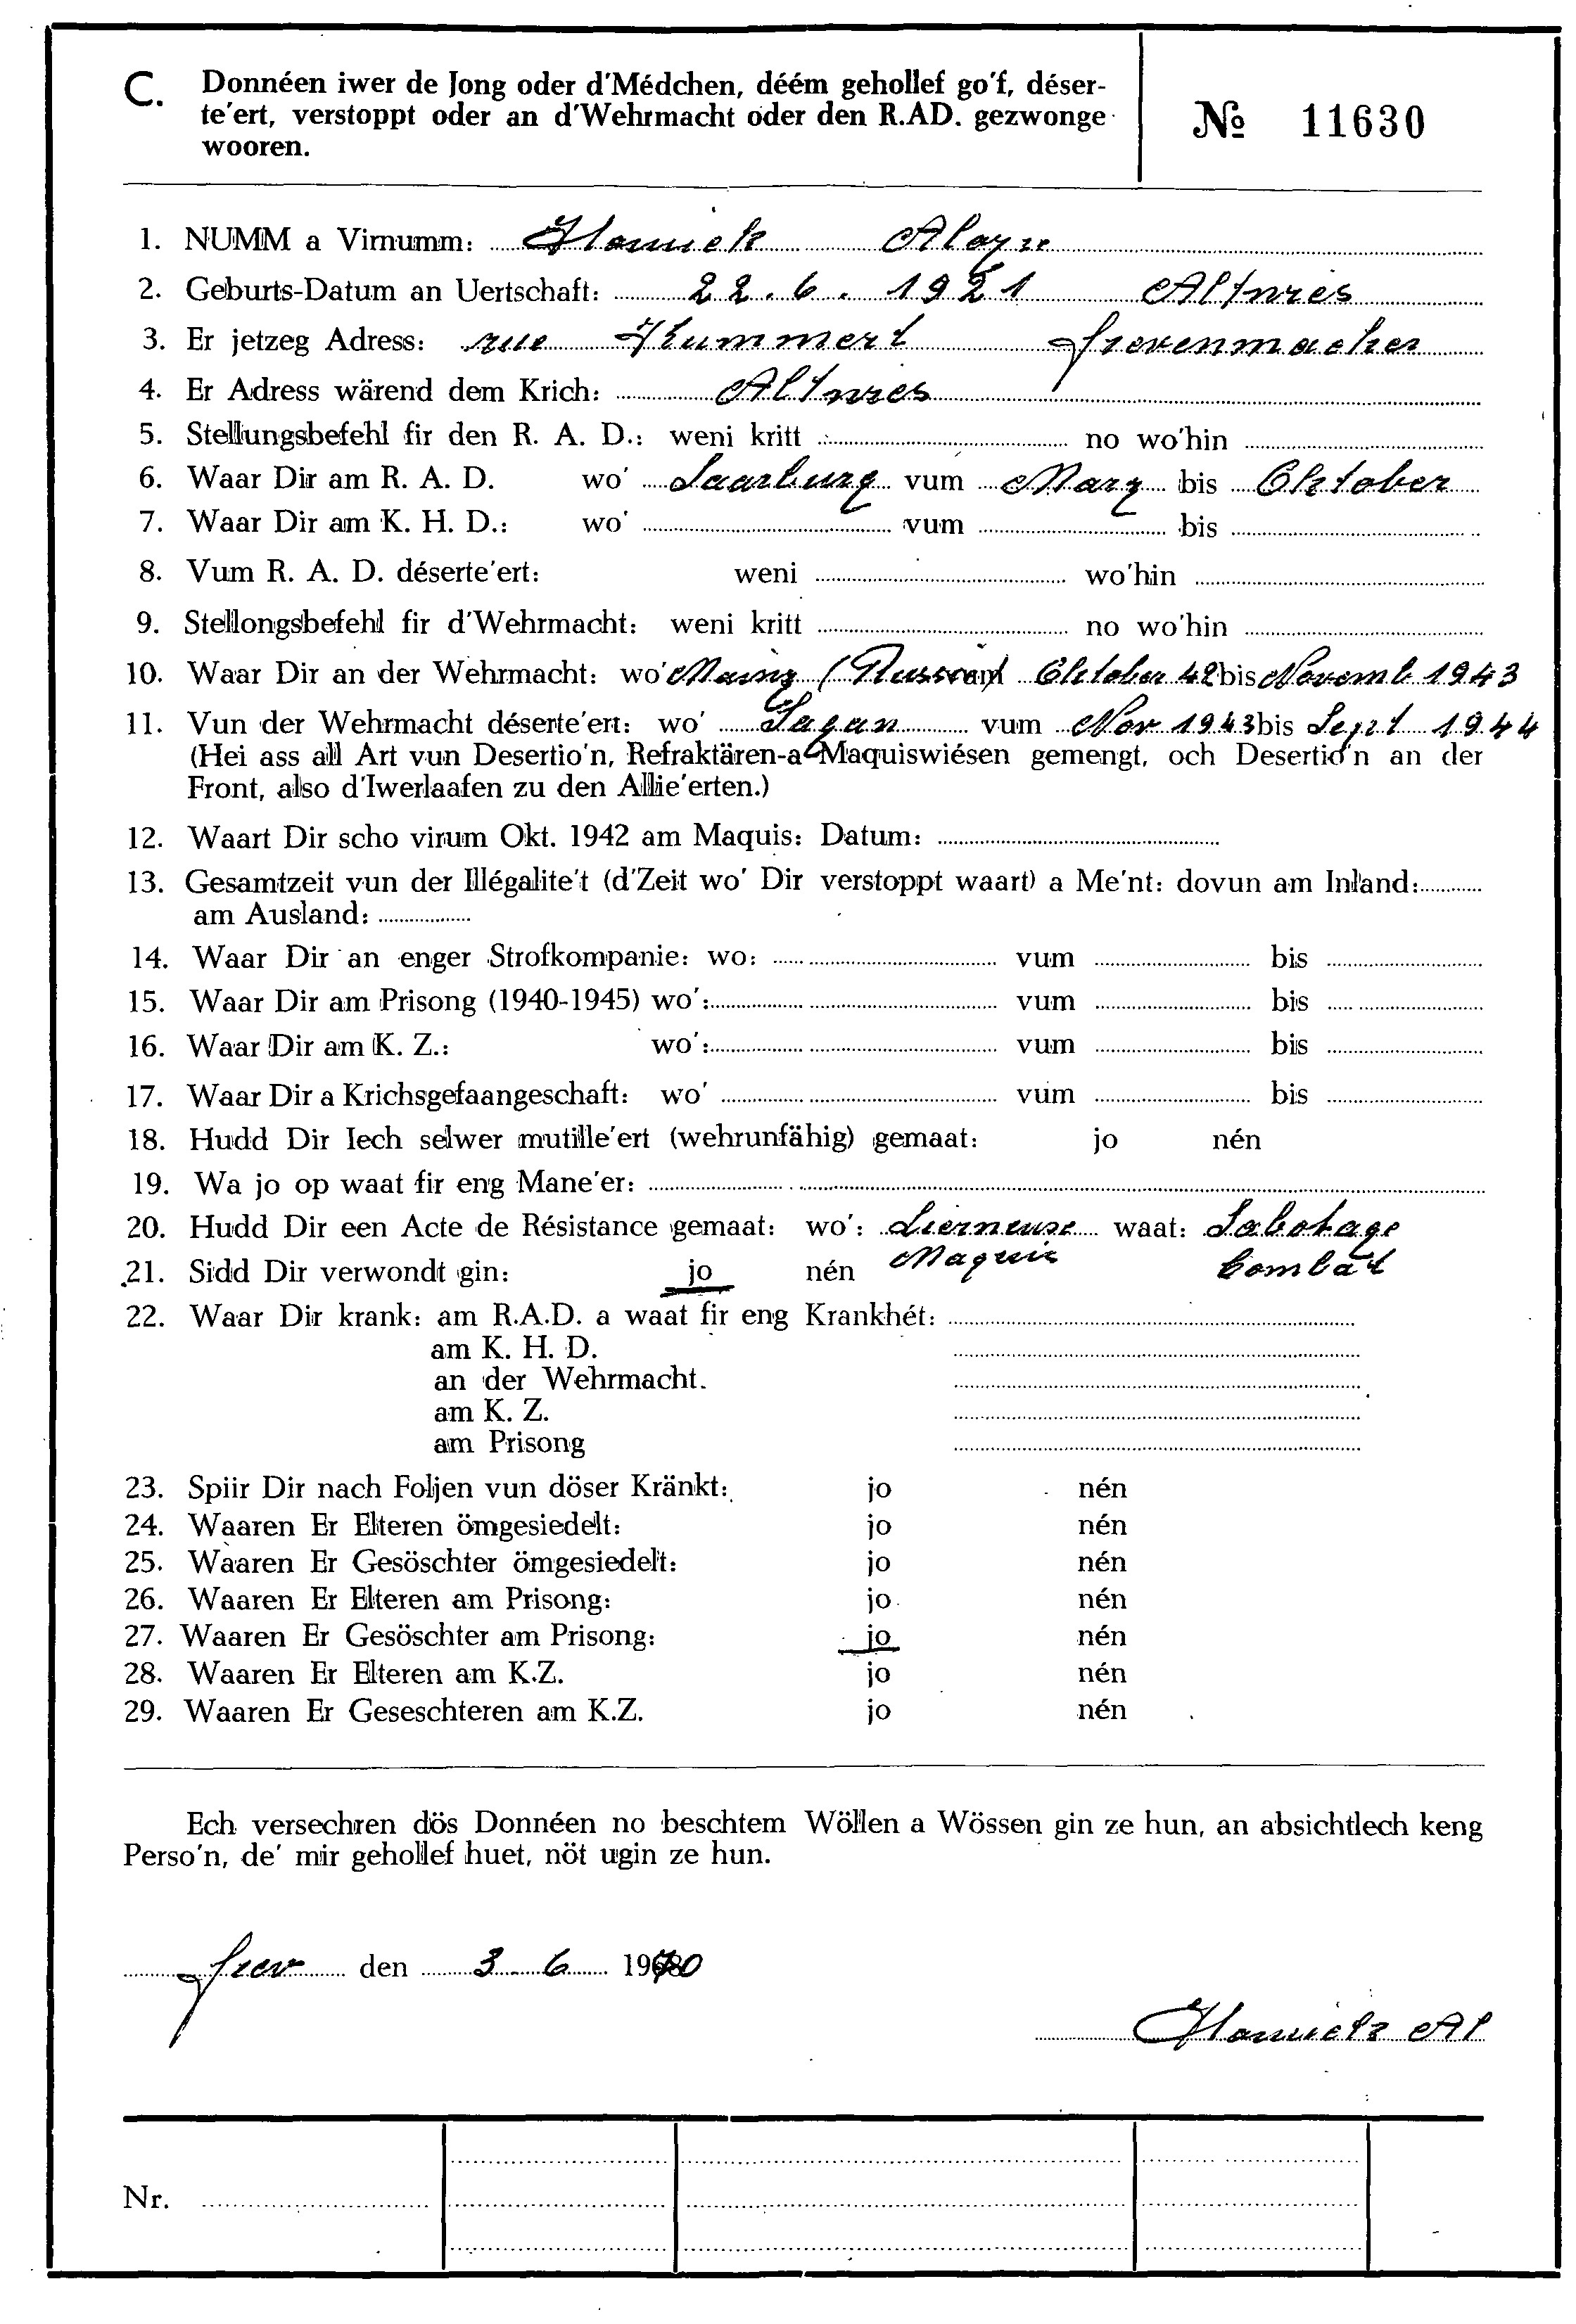 C. Donnéen iwer de Jong oder d'Médchen, déém gehollef go'f, déser-
te'ert, verstoppt oder an d'Wehrmacht oder den R.AD. gezwonge
wooren.
№ 11630
1. NUMM a Virnumm:
2. Geburts-Datum an Uertschaft: 22.6.1921 Altwies
3. Er jetzeg Adress: rue Kummert Grevenmacher
4. Er Adress wärend dem Krich: Altwies
5. Stellungsbefehl fir den R. A. D.: weni kritt no wo'hin
6. Waar Dir am R. A. D. wo' Saarburg vum Marz bis Oktober
7. Waar Dir am K. H. D.: wo' vum bis
8. Vum R. A. D. déserte'ert: weni wo'hin
9. Stellongsbefehl fir d'Wehrmacht: weni kritt no wo'hin
10. Waar Dir an der Wehrmacht: wo' Mainz / Russland Oktober 42 bis Novemb 1943
11. Vun der Wehrmacht déserte'ert: wo' Sagan vum Nov 1943 bis Sept 1944
(Hei ass all Art vun Desertio'n, Refraktären-a Maquiswiésen gemengt, och Desertio'n an der
Front, also d'Iwerlaafen zu den Allie'erten.)
12. Waart Dir scho virum Okt. 1942 am Maquis: Datum:
13. Gesamtzeit vun der Illégalite't (d'Zeit wo' Dir verstoppt waart) a Me'nt: dovun am Inland:
am Ausland:
14. Waar Dir an enger Strofkompanie: wo: vum bis
15. Waar Dir am Prisong (1940-1945) wo': vum bis
16. Waar Dir am K. Z.: wo': vum bis
17. Waar Dir a Krichsgefaangeschaft: wo' vum bis
18. Hudd Dir Iech selwer mutille'ert (wehrunfähig) gemaat: jo nén
19. Wa jo op waat fir eng Mane'er:
20. Hudd Dir een Acte de Résistance gemaat: wo': waat: Sabotage
21. Sidd Dir verwondt gin: jo nén Maquis Combat
22. Waar Dir krank: am R.A.D. a waat fir eng Krankhét:
am K. H. D.
an der Wehrmacht.
am K. Z.
am Prisong
23. Spiir Dir nach Foljen vun döser Kränkt: jo nén
24. Waaren Er Elteren ömgesiedelt: jo nén
25. Waaren Er Gesöschter ömgesiedelt: jo nén
26. Waaren Er Elteren am Prisong: jo nén
27. Waaren Er Gesöschter am Prisong: jo nén
28. Waaren Er Elteren am K.Z. jo nén
29. Waaren Er Geseschteren am K.Z. jo nén
Ech versechren dös Donnéen no beschtem Wöllen a Wössen gin ze hun, an absichtlech keng
Perso'n, de' mir gehollef huet, nöt ugin ze hun.
Grev den 3.6. 1970
Nr.